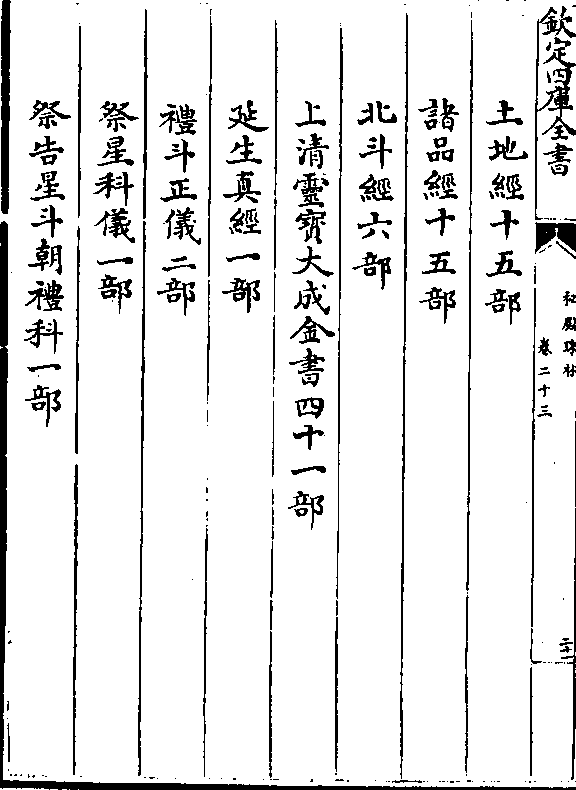 欽定四庫全書
秘殿珠林
卷二十三
土地經十五部
諸品經十五部
北斗經六部
上清靈寶大成金書四十一部
延生真經一部
禮斗正儀二部
祭星科儀一部
祭告星斗朝禮科一部